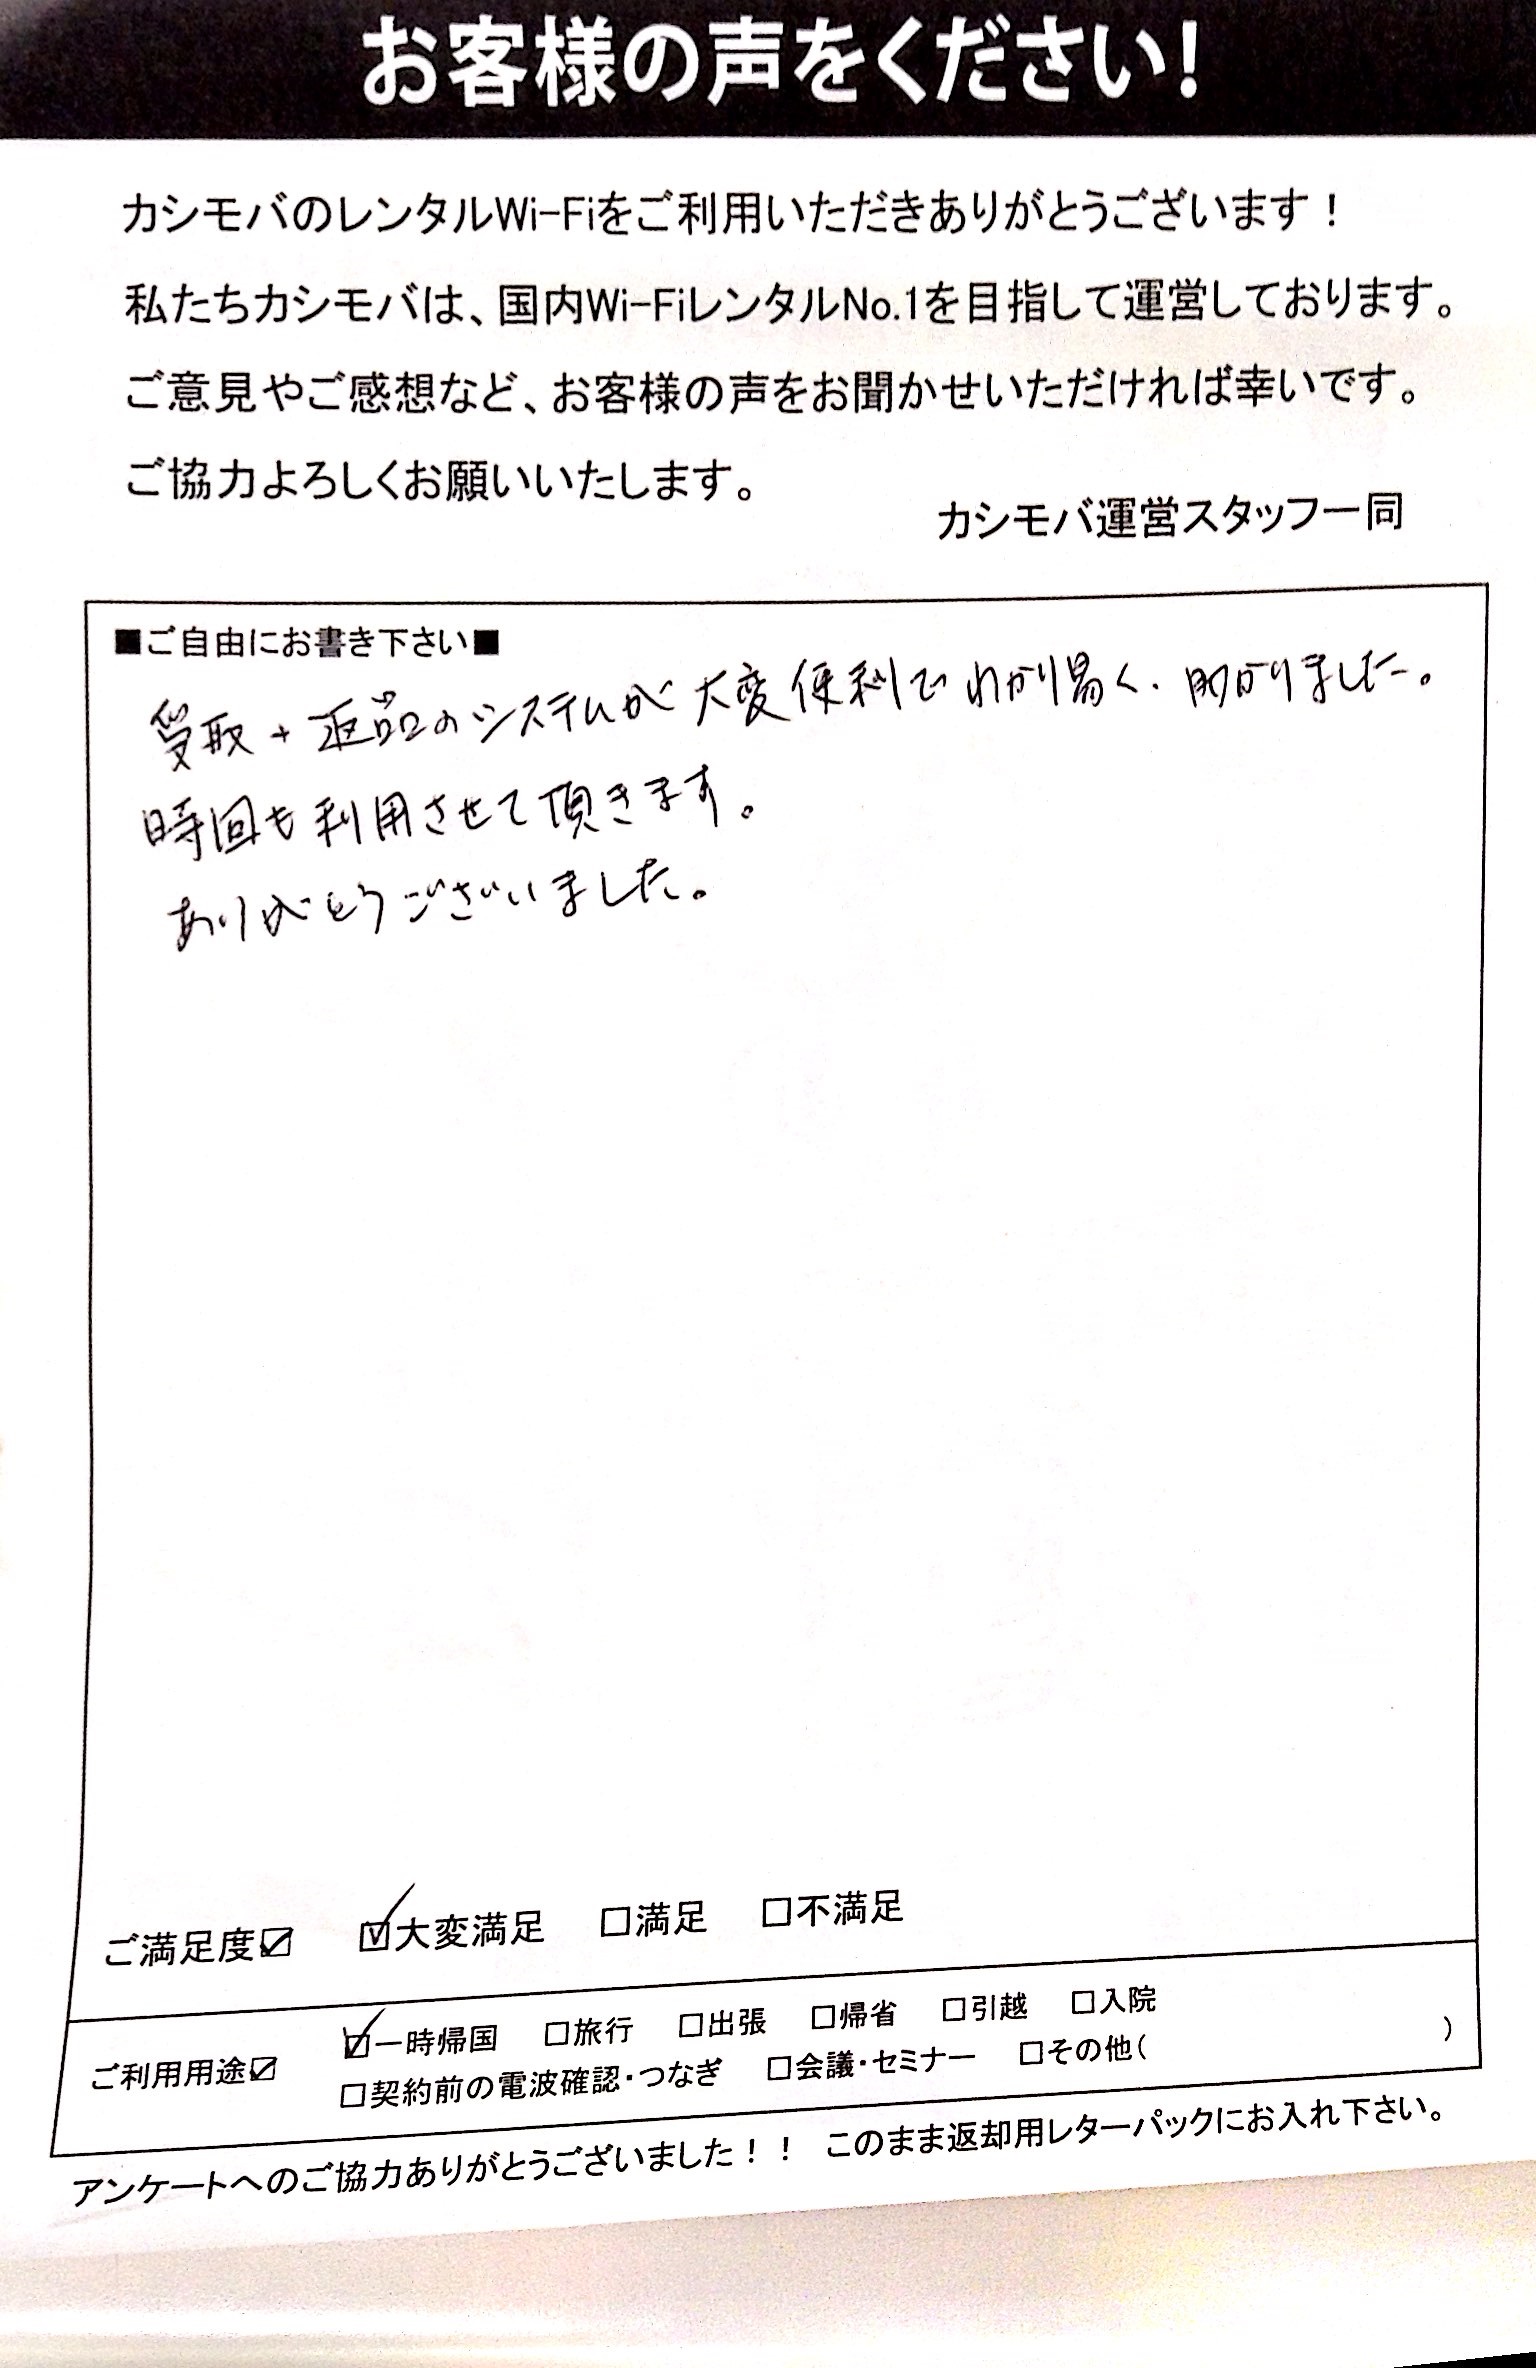 お客様の声をください!
カシモバのレンタルWi-Fiをご利用いただきありがとうございます！
私たちカシモバは、国内Wi-FiレンタルNo.1を目指して運営しております。
ご意見やご感想など、お客様の声をお聞かせいただければ幸いです。
ご協力よろしくお願いいたします。
カシモバ運営スタッフ一同
■ご自由にお書き下さい■
受取+返品のシステムが大変便利でわかり易く、助かりました。
時回も利用させて頂きます。
ありがとうございました。
ご満足度☑ ☑大変満足 □満足 □不満足
ご利用用途☑ ☑一時帰国 □旅行 □出張 □帰省 □引越 □入院
□契約前の電波確認・つなぎ □会議・セミナー □その他( )
アンケートへのご協力ありがとうございました！！ このまま返却用レターパックにお入れ下さい。